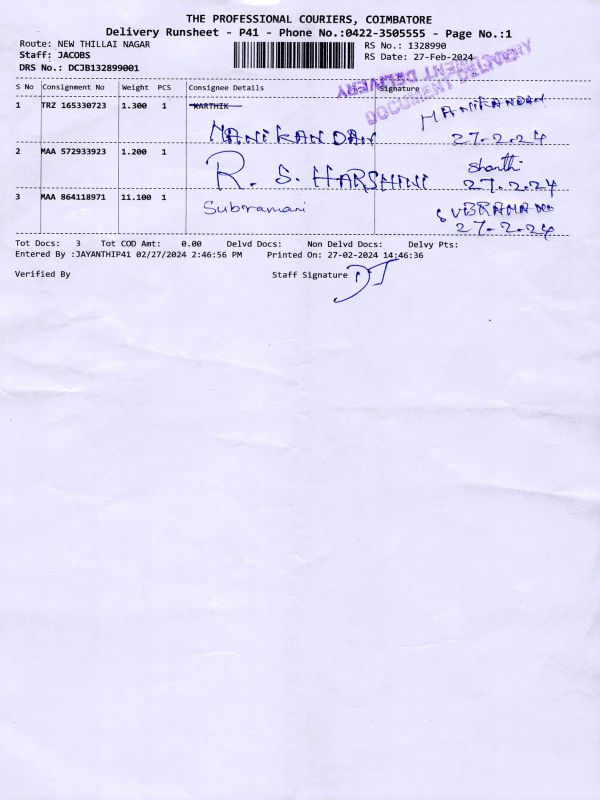 THE PROFESSIONAL COURIERS, COIMBATORE
Delivery Runsheet - P41 - Phone No.:0422-3505555 - Page No.:1
Route: NEW THILLAI NAGAR RS No.: 1328990
Staff: JACOBS RS Date: 27-Feb-2024
DRS No.: DCJB132899001
DOCUMENT DELIVERY
S No Consignment No Weight PCS Consignee Details Signature
1 TRZ 165330723 1.300 1 KARTHIK MANIKANDAN
MANIKANDAN 27-2-24
2 MAA 572933923 1.200 1 R. S. HARSHINI Shanthi
27.2.24
3 MAA 864118971 11.100 1 Subramani SUBRAMANI
27-2-24
Tot Docs: 3 Tot COD Amt: 0.00 Delvd Docs: Non Delvd Docs: Delvy Pts:
Entered By :JAYANTHIP41 02/27/2024 2:46:56 PM Printed On: 27-02-2024 14:46:36
Verified By Staff Signature